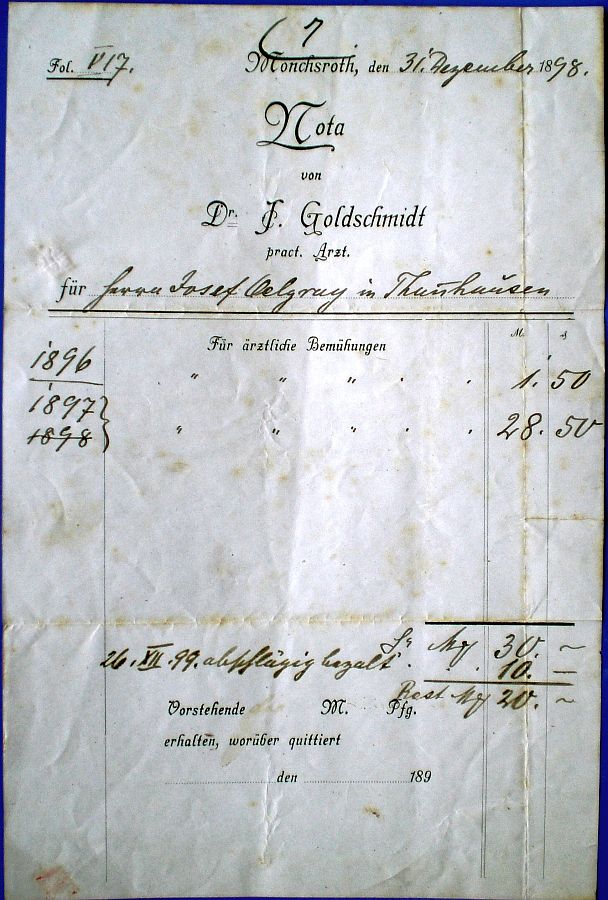 (7
Fol. V 17. Mönchsroth, den 31. Dezember 1898.
Nota
von
Dr. J. Goldschmidt
pract. Arzt.
für Herrn Josef in Thannhausen
M. ₰
Für ärztliche Bemühungen
1896 " " " . . 1. 50
1897 }
1898 } " " " . . 28. 50
Sa Mg 30. ~
26. XII. 99. abschlägig bezalt . . . 10. —
Rest Mg 20. ~
Vorstehende M. Pfg.
erhalten, worüber quittiert
den 189